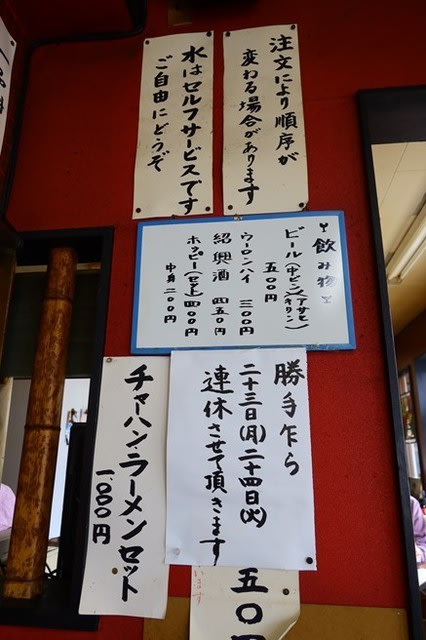 注文により順序が
変わる場合があります
水はセルフサービスです
ご自由にどうぞ
飲み物
ビール(中ビン)(アサヒ キリン)
五〇〇円
ウーロンハイ 三〇〇円
紹興酒 四五〇円
ホッピー(セット)四〇〇円
中身二〇〇円
勝手乍ら
二十三日(月)二十四日(火)
連休させて頂きます
チャーハン・ラーメンセット
一、〇〇〇円
五〇円
います